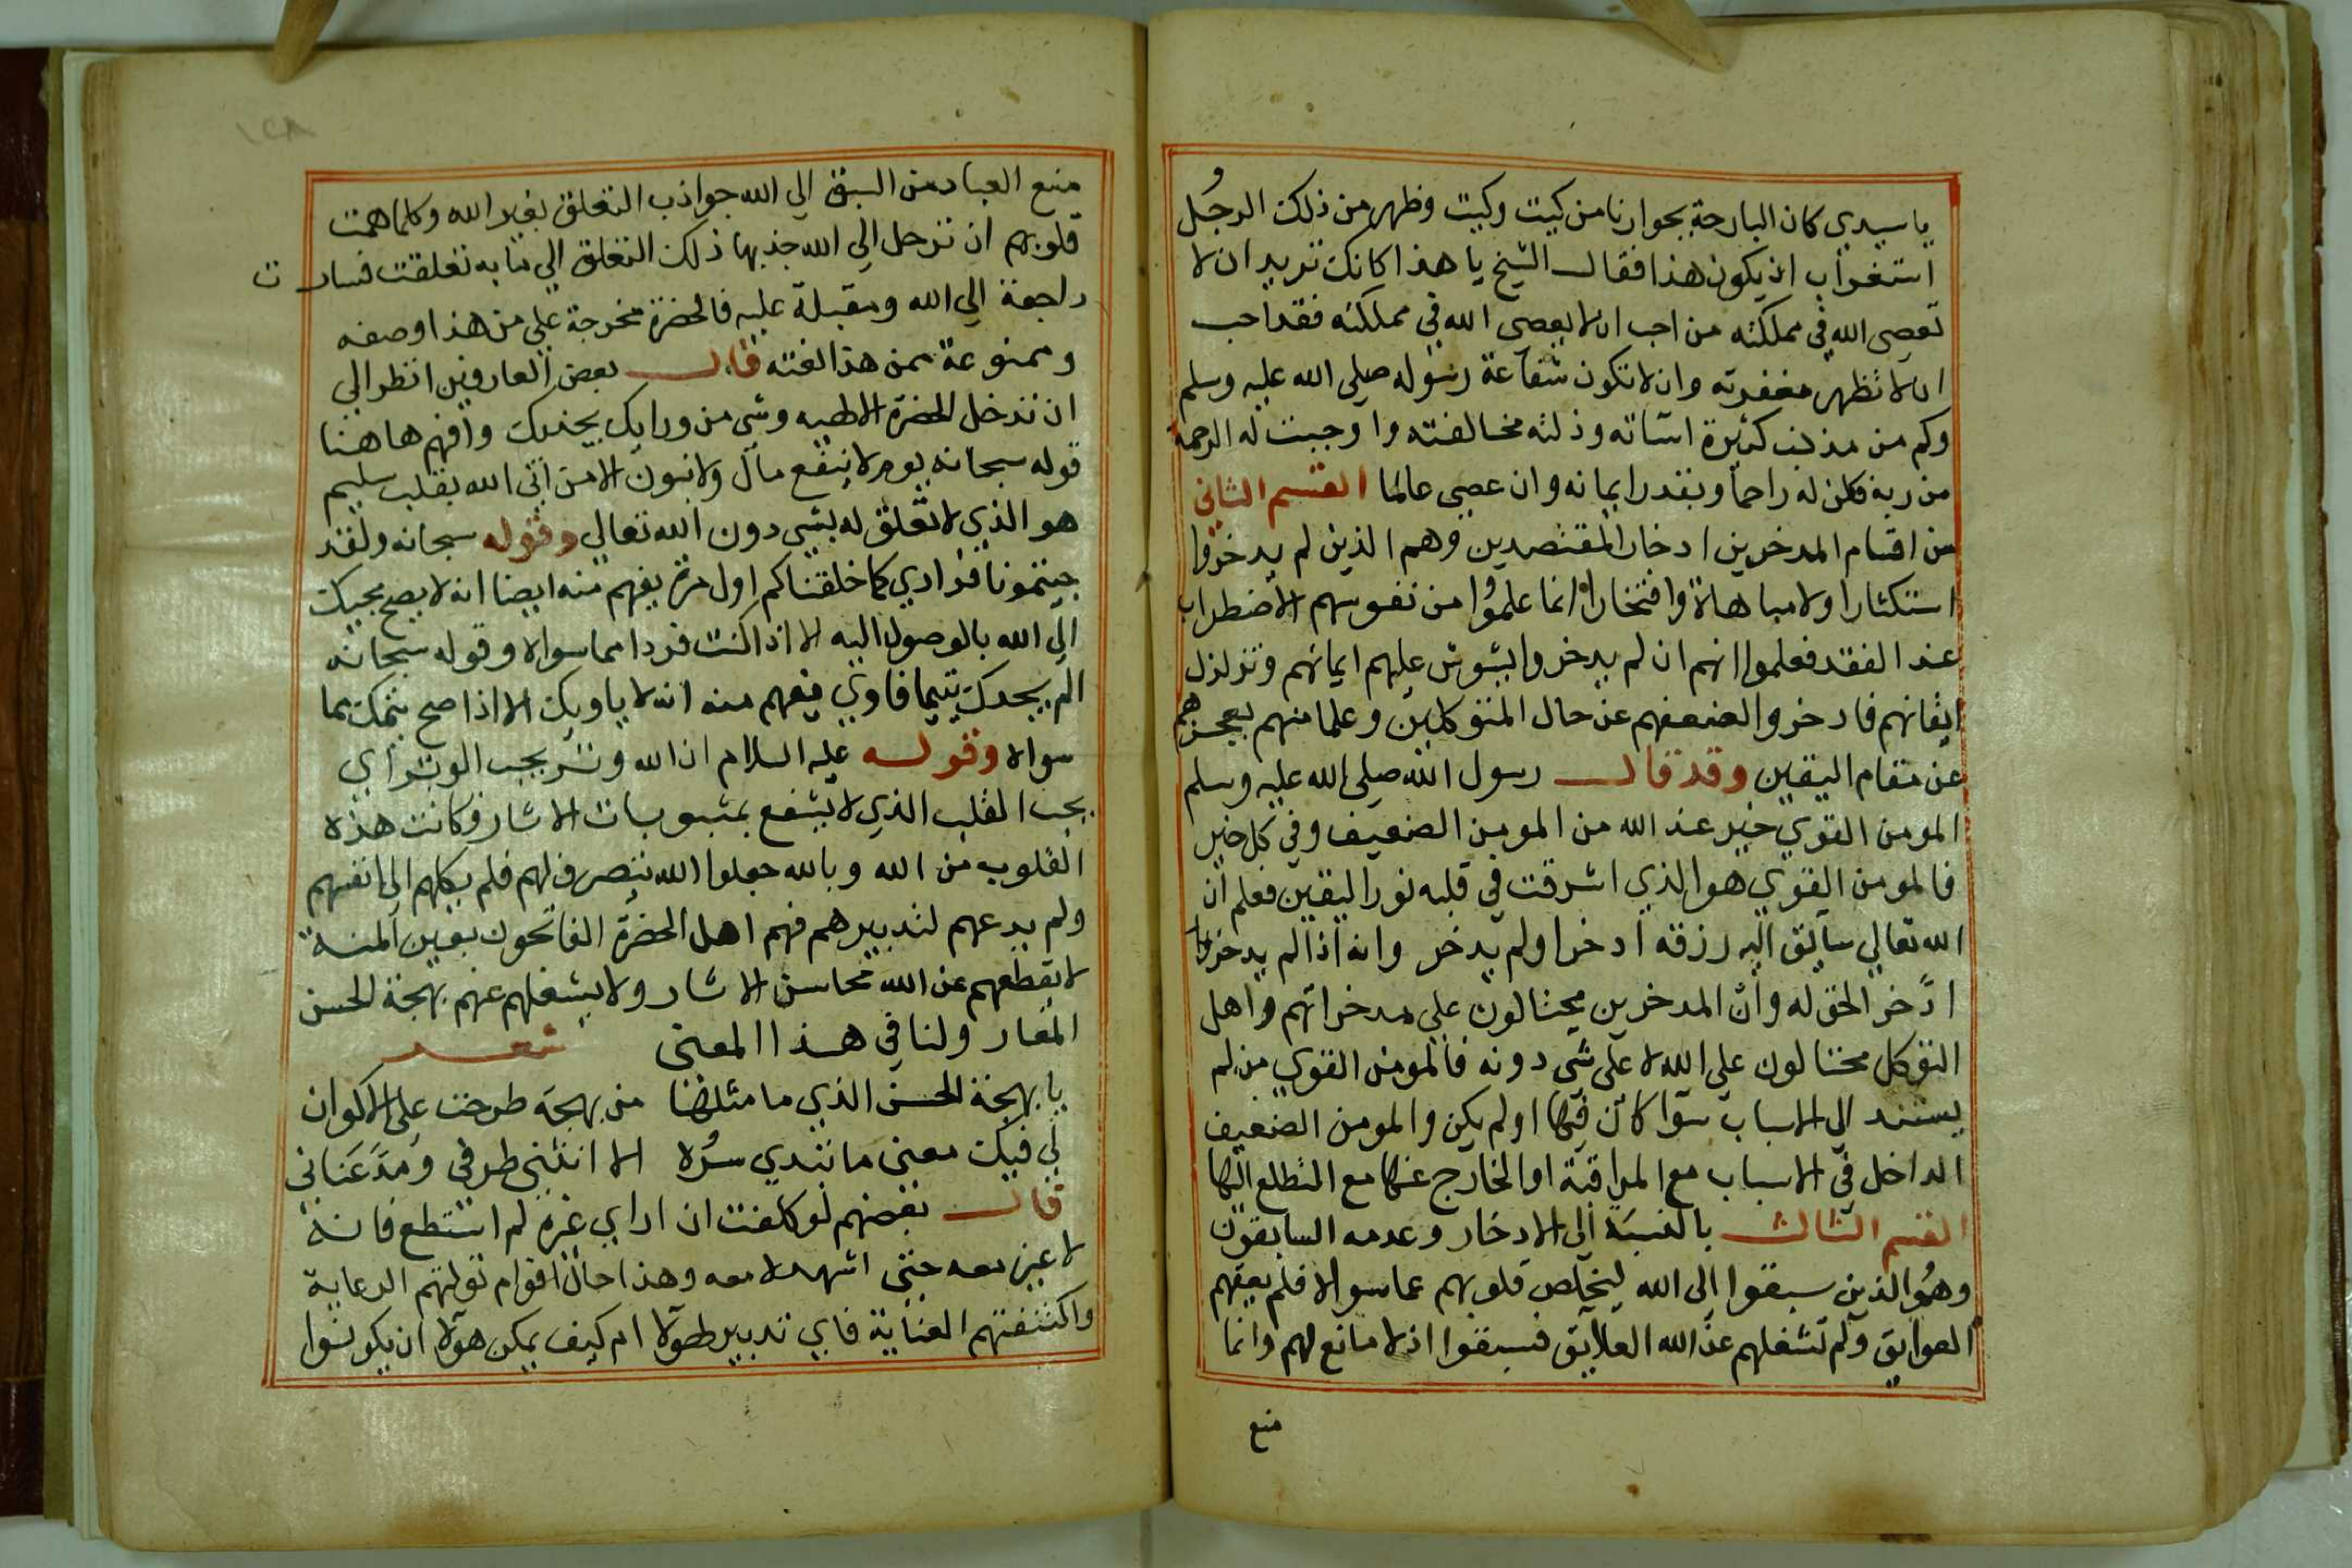 يا سيدي كان البارحة بجوارنا من كيت وكيت وظهر من ذلك الرجل
استغراب ان يكون هذا فقال الشيخ يا هذا كانك تريد ان لا
تعصى الله في مملكته من احب ان لا يعصى الله في مملكته فقد احب
ان لا تظهر مغفرته وان لا تكون شفاعة رسوله صلى الله عليه وسلم
وكم من مذنب كثيرة اسآته وذلته مخالفته واوجبت له الرحمة
من ربه فكن له راحما وبقدر ايمانه وان عصى عالما القسم الثاني
من اقسام المدخرين ادخار المقتصدين وهم الذين لم يدخروا
استكثارا ولا مباهاة وافتخارا وانما علموا من نفوسهم الاضطراب
عند الفقد فعلموا انهم ان لم يدخروا يشوش عليهم ايمانهم وتزلزل
ايقانهم فادخروا لضعفهم عن حال المتوكلين وعلما منهم بعجزهم
عن مقام اليقين وقد قال رسول الله صلى الله عليه وسلم
المومن القوي خير عند الله من المومن الضعيف وفي كل خير
فالمومن القوي هو الذي اشرقت في قلبه نور اليقين فعلم ان
الله تعالي سائق اليه رزقه ادخر اولم يدخر وانه اذا لم يدخروا
ادّخر الحق له وان المدخرين محتالون علي مدخراتهم واهل
التوكل محتالون علي الله لا على شي دونه فالمومن القوي من لم
يستند الي الاسباب سوا كان فيها اولم يكن والمومن الضعيف
الداخل في الاسباب مع المراقبة او الخارج عنها مع التطلع اليها
القسم الثالث بالنسبة الي الادخار وعدمه السابقون
وهُو الذين سبقوا الى الله ليخلص قلوبهم عما سواه فلم يعقهم
العوايق ولم تشغلهم عن الله العلايق فسبقوا اذ لا مانع لهم وانما
منع
١٢٨
منع العباد من السبق الي الله جواذب التعلق بغير الله وكلما همت
قلوبهم ان ترحل الي الله جذبها ذلك التعلق الي ما به تعلقت فسارت
راجعة الي الله ومقبلة عليه فالحضرة مخرجة علي من هذا وصفه
وممنوعة ممن هذا نعته قال بعض العارفين انظر الي
ان تدخل الحضرة الالهيه وشي من ورايك يجذبك وافهم هاهنا
قوله سبحانه يوم لا ينفع مال ولا بنون الا من اتى الله بقلب سليم
هو الذي لا تعلق له بشي دون الله تعالي وقوله سبحانه ولقد
جيتمونا فرادي كما خلقناكم اول مرة يفهم منه ايضا انه لا يصح مجيك
الي الله بالوصول اليه الا اذا كنت فردا مما سواه وقوله سبحانه
الم يجدك يتيما فاوى فيفهم منه انه لا ياويك الا اذا صح يتمك مما
سواه وقوله عليه السلام ان الله وتر يحب الوتر اي
يحب القلب الذي لا يشفع بمثبوبات الاثار وكانت هذه
القلوب من الله وبالله جعلوا الله يتصرف لهم فلم يكلهم الي انفسهم
ولم يدعهم لتدبيرهم فهم اهل الحضرة الفاتحون بعين المنه
لا يقطعهم عن الله محاسن الاثار ولا يشغلهم عنهم بهجة الحسن
المعار ولنا في هذا المعنى شعر
يا بهجة الحسن الذي ما مثلها من بهجة طرحت على الاكوان
لي فيك معنى ما تبدي سره الا انثنى طرفي ومدّ عناني
قال بعضهم لو كلفت ان اراي غره لم استطع فانه
لا غير معه حتى اشهده معه وهذا حال اقوام تولتهم الرعاية
واكتنفتهم العناية فاي تدبير لهولا ام كيف يمكن هولا ان يكونوا